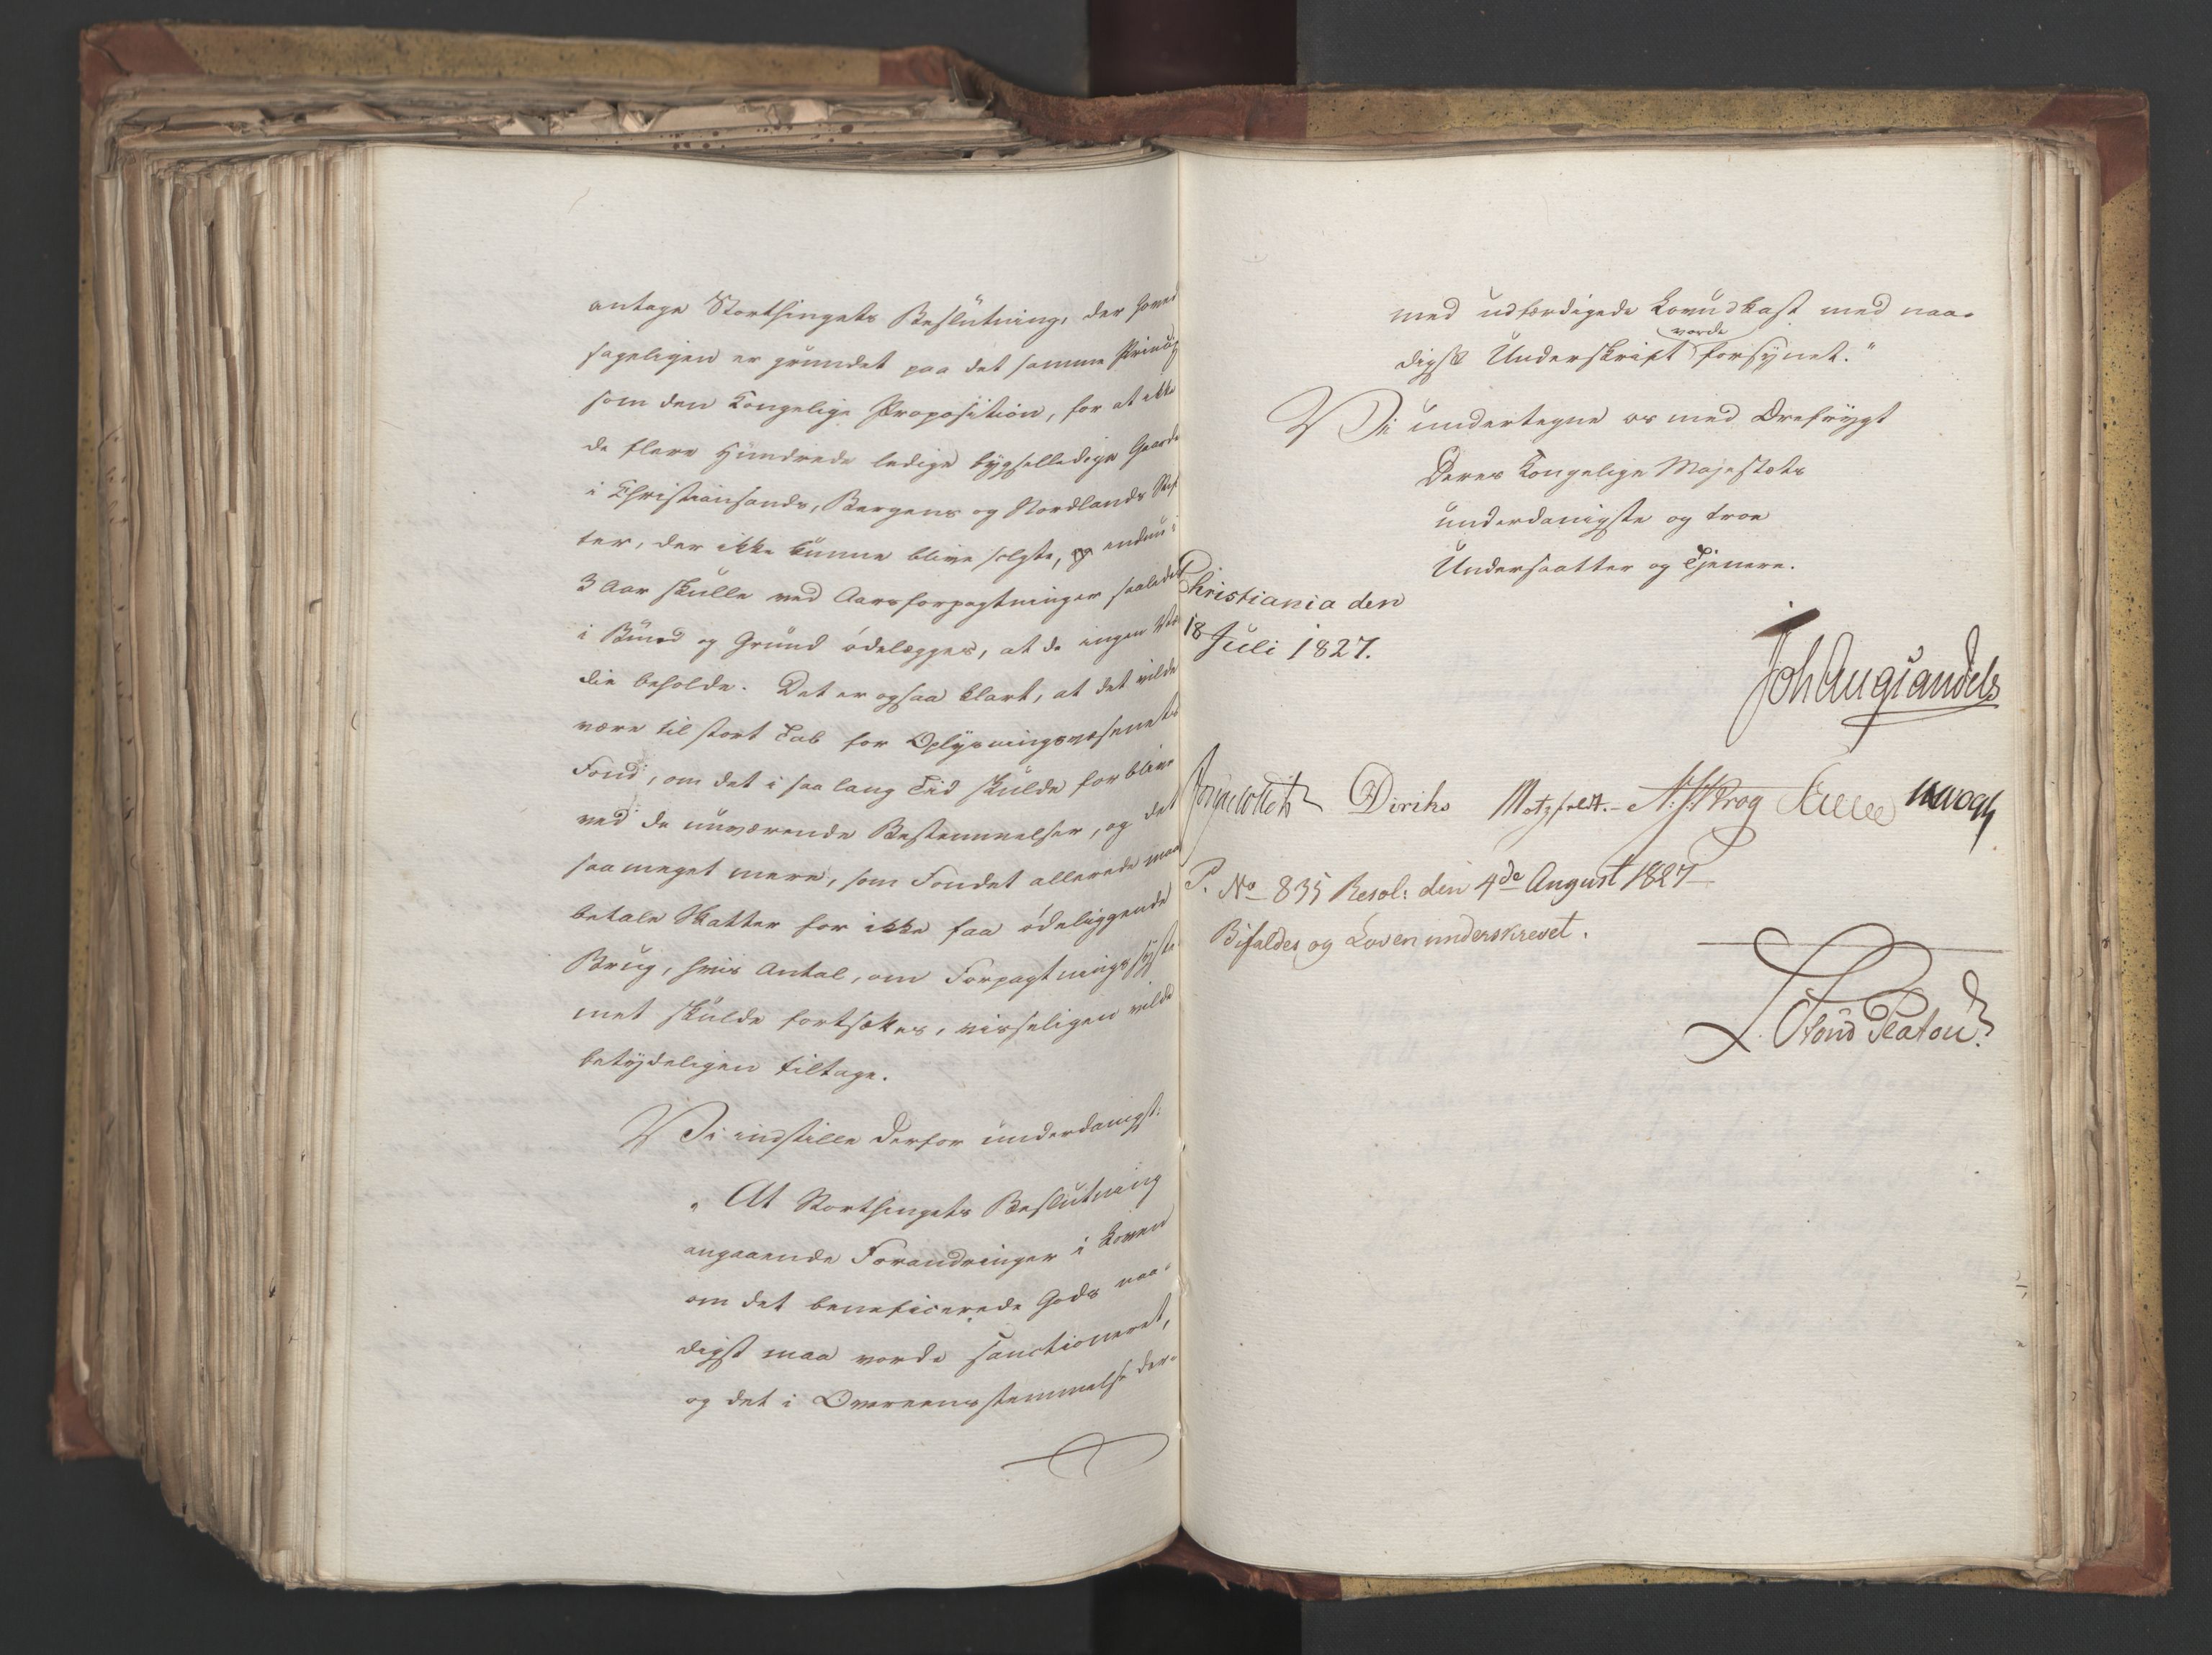 antage Storthingets Beslutning, der hoved
sageligen er grundet paa det samme Princip
som den Kongelige Proposition, for at ikke
de flere Hundrede ledige bygselledige Gaarde
i Christiansands, Bergens og Nordlands Stif
ter, der ikke kunne blive solgte, og endnu i
3 Aar skulle ved Aarsforpagtninger saaledes
i Bund og Grund ödelægges, at de ingen Vær
die beholde. Det er ogsaa klart, at det vilde
være til stort Tab for Oplysningsvæsenets
Fond, om det i saa lang Tid skulde forblive
ved de nuværende Bestemmelser, og det
saa meget mere, som Fondet allerede maa
betale Skatter for ikke faa ödeliggende
Brug, hvis Antal, om Forpagtningssyste
met skulde fortsættes, visseligen vilde
betydeligen tiltage.
Vi indstille derfor underdanigst:
„At Storthingets Beslutning
angaaende Forandringer i Loven
om det beneficerede Gods naa-
digst maa vorde sanctioneret,
og det i Overeensstemmelse der-
med udfærdigede Lovudkast med naa-
digst Underskrift vorde forsynet."
Vi undertegne os med Ærefrygt
Deres Kongelige Majestæts
underdanigste og troe
Undersaatter og Tjenere.
Christiania den
18 Juli 1827.
Joh Aug Sandels
Jonas Collett Diriks Motzfeldt. A: J: Krog
P. No 835 Resol: den 4de August 1827
Bifaldes og Loven underskrevet.
L. Stoud Platou